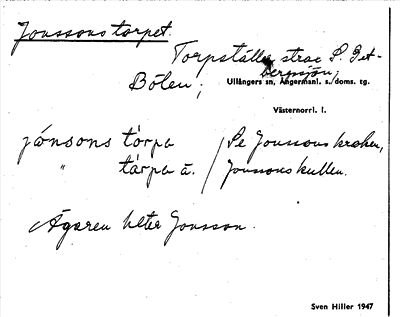 Jonssons torpet.
Torpställe strax S. Get-
bergsjön,
Bölen;
Ullångers sn, Ångermanl. s./doms. tg.
Västernorrl. l.
jónsons tòrpa / Se Jonssons kraken,
" tàrpa ä. / Jonssons kullen.
Ägaren heter Jonsson.
Sven Hiller 1947